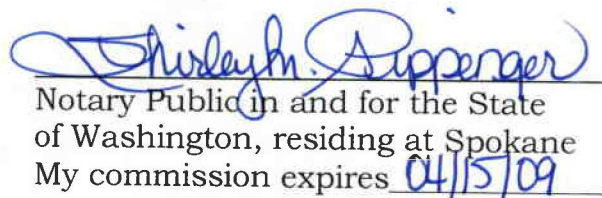 Shirley M. Sippenger
Notary Public in and for the State
of Washington, residing at Spokane
My commission expires 04/15/09